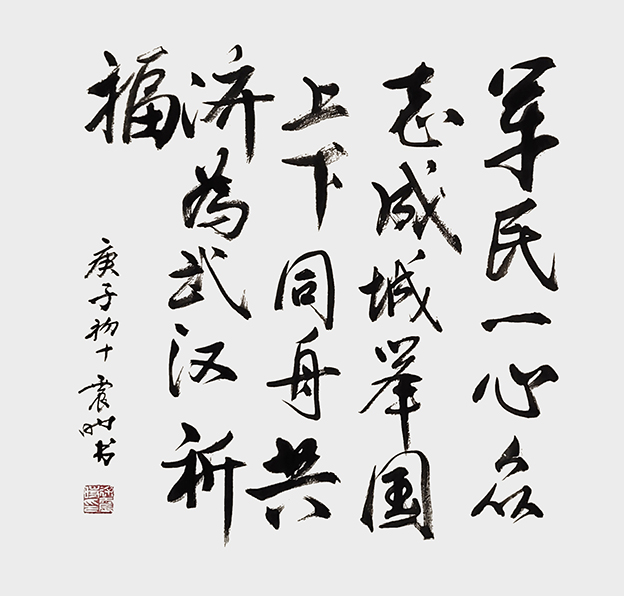 军民一心众
志成城举国
上下同舟共
济为武汉祈
福
庚子初十震时书